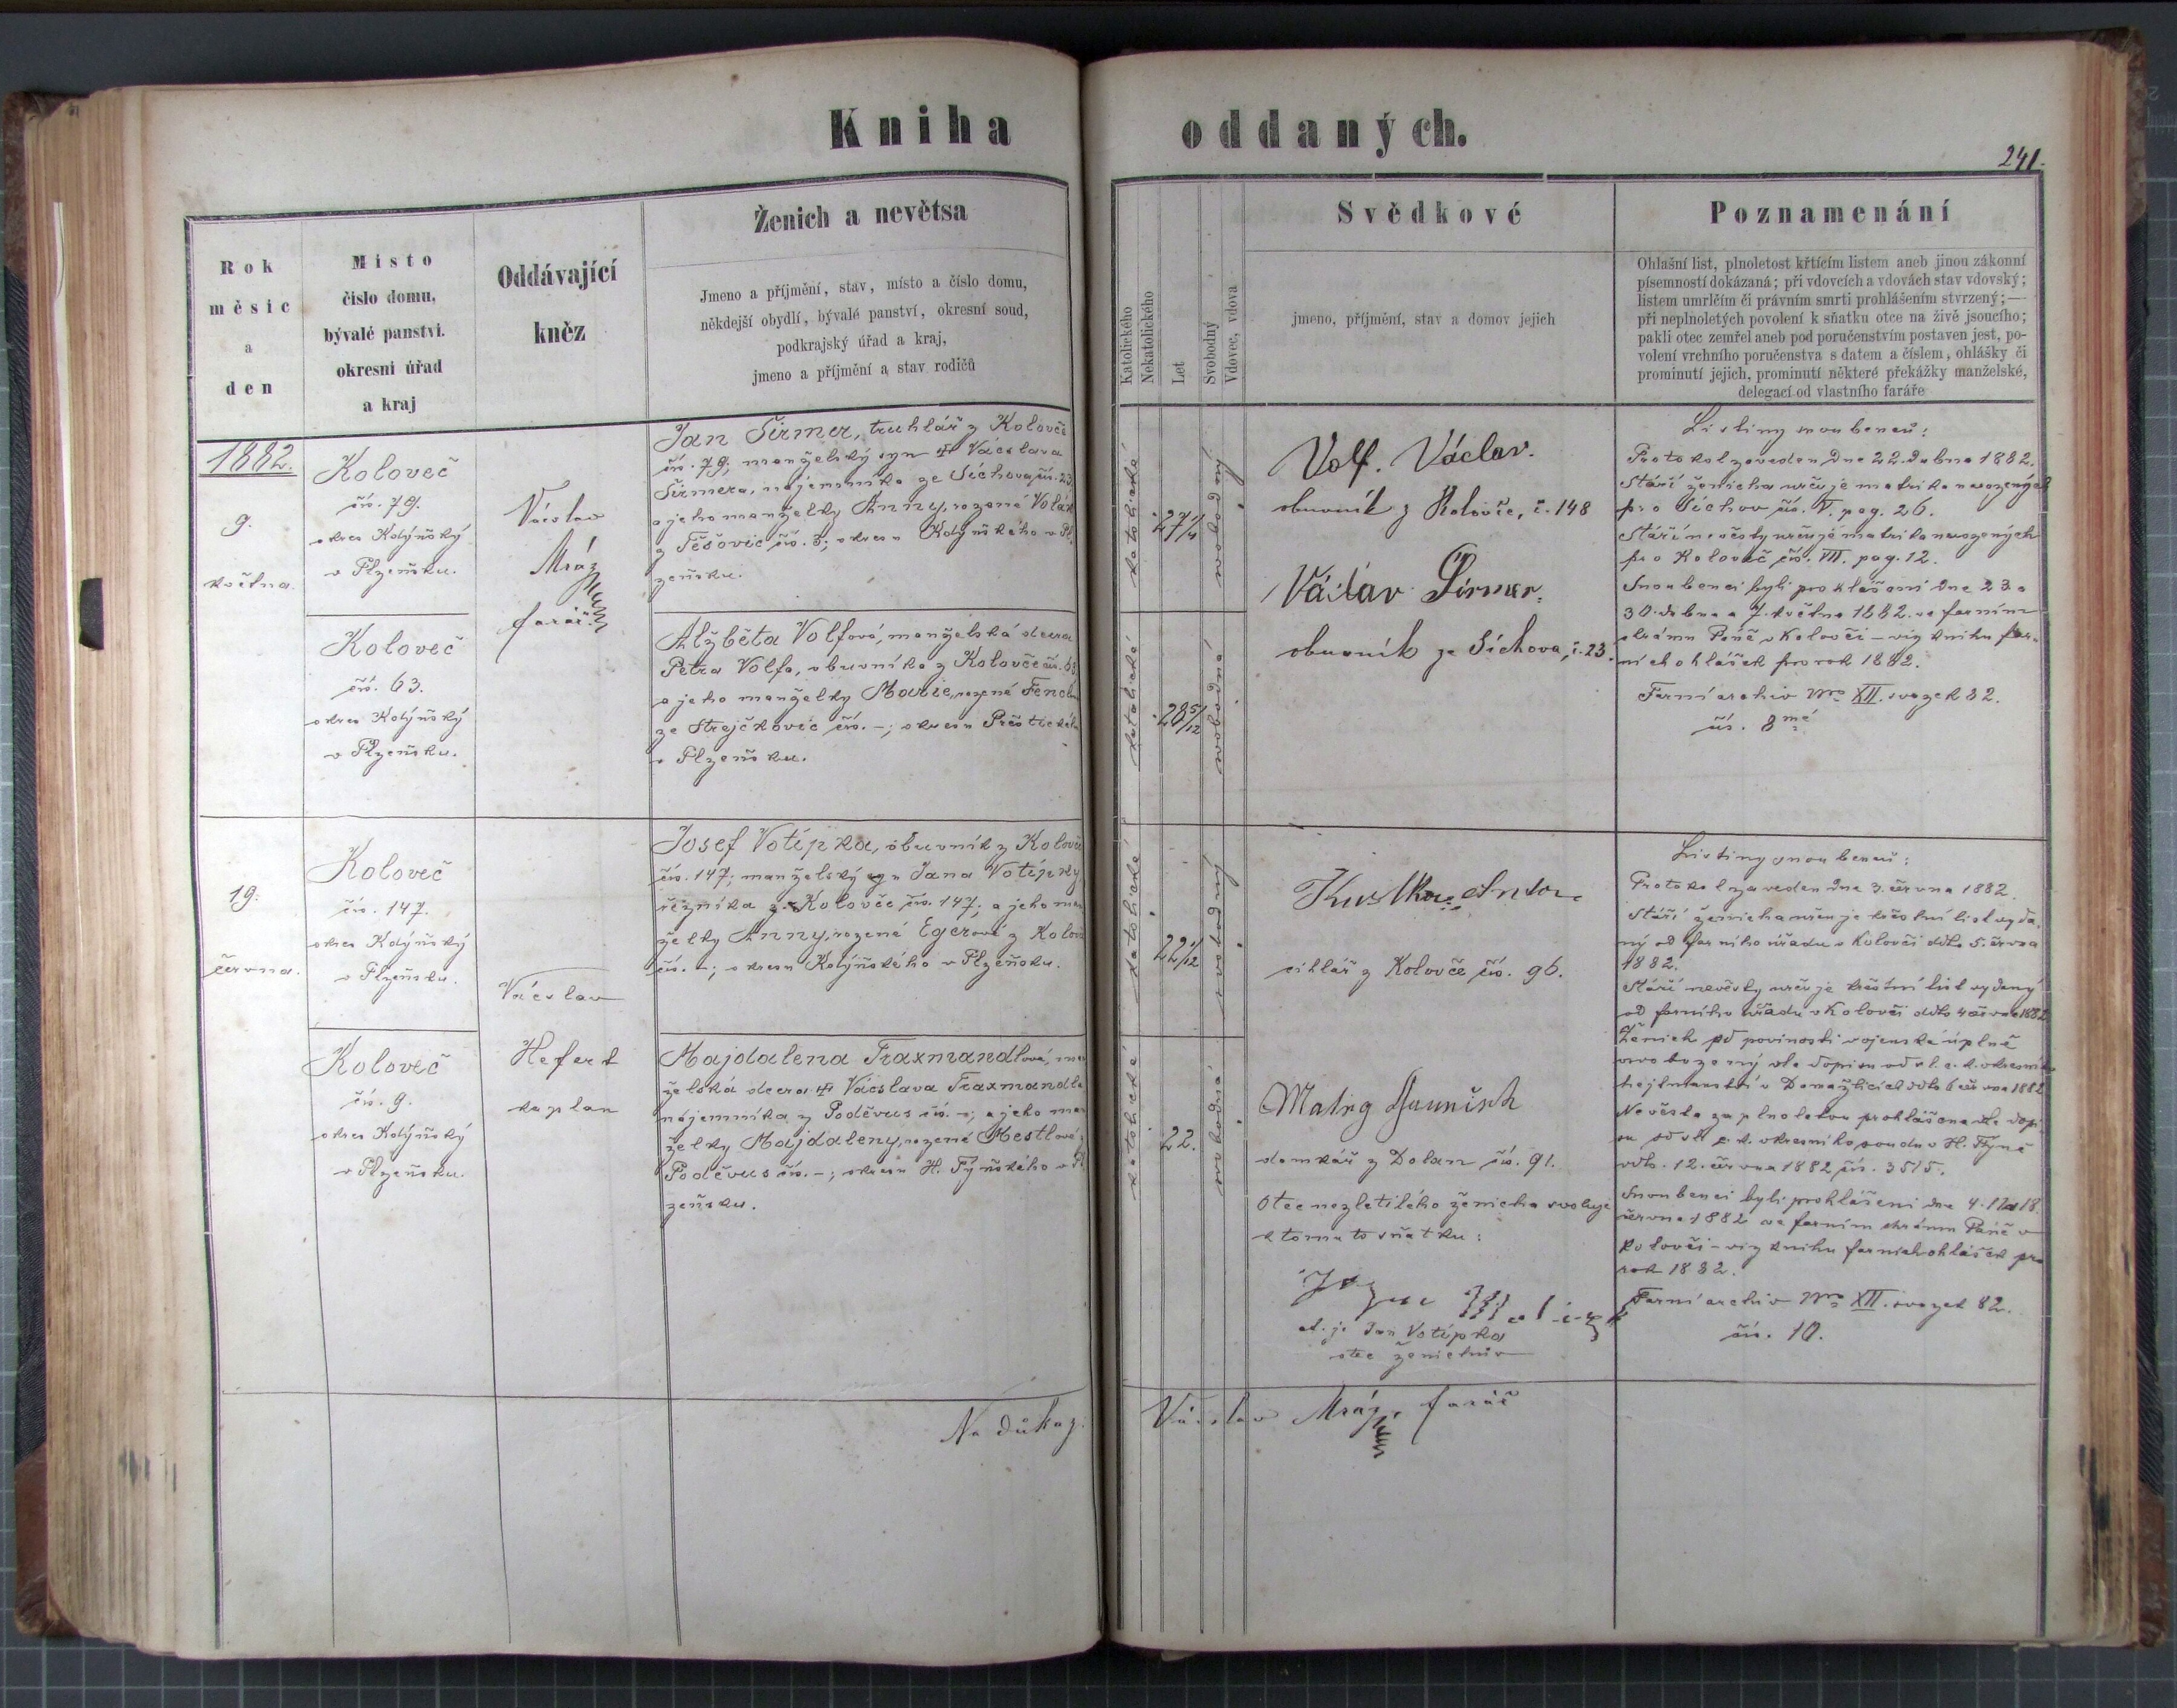 Kniha oddaných.
241.
Rok
měsíc
a
den
Místo
číslo domu,
bývalé panství.
okresní úřad
a kraj
Oddávající
kněz
Ženich a nevětsa
Jmeno a příjmění, stav, místo a číslo domu,
někdejší obydlí, bývalé panství, okresní soud,
podkrajský úřad a kraj,
jmeno a příjmění a stav rodičů
Katolického
Nekatolického
Let
Svobodný
Vdovec, vdova
Svědkové
jmeno, příjmění, stav a domov jejich
Poznamenání
Ohlašní list, plnoletost křtícím listem aneb jinou zákonní
písemností dokázaná; při vdovcích a vdovách stav vdovský;
listem umrlčím či právním smrti prohlášením stvrzený;—
při neplnoletých povolení k sňatku otce na živě jsoucího;
pakli otec zemřel aneb pod poručenstvím postaven jest, po-
volení vrchního poručenstva s datem a číslem, ohlášky či
prominutí jejich, prominutí některé překážky manželské,
delegací od vlastního faráře
1882.
9.
května.
Koloveč
čís. 79.
okres Kdýňský
v Plzeňsku.
Koloveč
čís. 63.
okres Kdýňský
v Plzeňsku.
Václav
Mráz
farář.
Jan Širmer, truhlář z Kolovče
čís. 79, manželský syn † Václava
Širmera, nájemníka ze Síchova, čís. 23
a jeho manželky Anny, rozené
z Těšovic čís. 3; okresu Kdýňského v Pl.
zeňsku.
Alžběta Volfová, manželská dcera
Petra Volfa, obuvníka z Kolovče čís. 63
a jeho manželky Marie, rozené
ze Strejčkovic čís. –; okresu
v Plzeňsku.
katolické
27 1/4
svobodný
katolické
28 5/12
svobodná
Volf. Václav.
obuvník z Kolovče, č. 148
Václav Širmer.
obuvník ze Síchova, č. 23.
Listiny snoubenců:
Protokol zaveden dne 22. dubna 1882.
Stáří ženicha určuje matrika narozených
pro Síchov čís. V. pag. 26.
Stáří nevěsty určuje matrika narozených
pro Koloveč čís. VII. pag. 12.
Snoubenci byli prohlášeni dne 23. a
30. dubna a 7. května 1882. ve farním
chrámu Páně v Kolovči – viz knihu far-
ních ohlášek pro rok 1882.
Farní archiv Nro XII. svazek 82.
čís. 8
19.
června.
Koloveč
čís. 147.
okres Kdýňský
v Plzeňsku.
Koloveč
čís. 9.
okres Kdýňský
v Plzeňsku.
Václav
Hefert
kaplan
Josef Votípka, obuvník z Kolovče
čís. 147; manželský syn Jana Votípky
řezníka z Kolovče čís. 147; a jeho man
želky Anny, rozené Egerové z Kolovče
čís. –; okresu Kdýňského v Plzeňsku.
Majdalena Traxmandlová, man
želská dcera † Václava Traxmandla
nájemníka z Poděvus čís. –; a jeho man
želky Majdaleny, rozené Mestlové z
Poděvus čís. –; okresu H. Týnského v Pl
zeňsku.
katolické
22 1/12
svobodný
katolické
22.
svobodná
Anton
cihlář z Kolovče čís. 96.
domkář z Dolan čís. 91.
Otec nezletilého ženicha svoluje
k tomuto sňatku:
t. j. Jan Votípka
otec ženichův
Listiny snoubenců:
Protokol zaveden dne 3. června 1882.
Stáří ženicha určuje křestní list vyda-
ný od farního úřadu v Kolovči ddto 5. června
1882.
Stáří nevěsty určuje křestní list vydaný
od farního úřadu v Kolovči ddto 4 června 1882
Ženich od povinosti vojenské úplně
osvobozený dle dopisu od sl. c. k. okresního
hejtmanství v Domažlicích ddto 6 června 1882
Nevěsta za plnoletou prohlášena dle dopi
su od sl. c. k. okresního soudu v H. Týně
ddto. 12. června 1882 čís. 3515.
Snoubenci byli prohlášeni dne 4. 11 a 18.
června 1882 ve farním chrámu Páně v
Kolovči – viz knihu farních ohlášek pro
rok 1882.
Farní archiv Nro XII. svazek 82.
čís. 10.
Na důkaz: Václav Mráz, farář